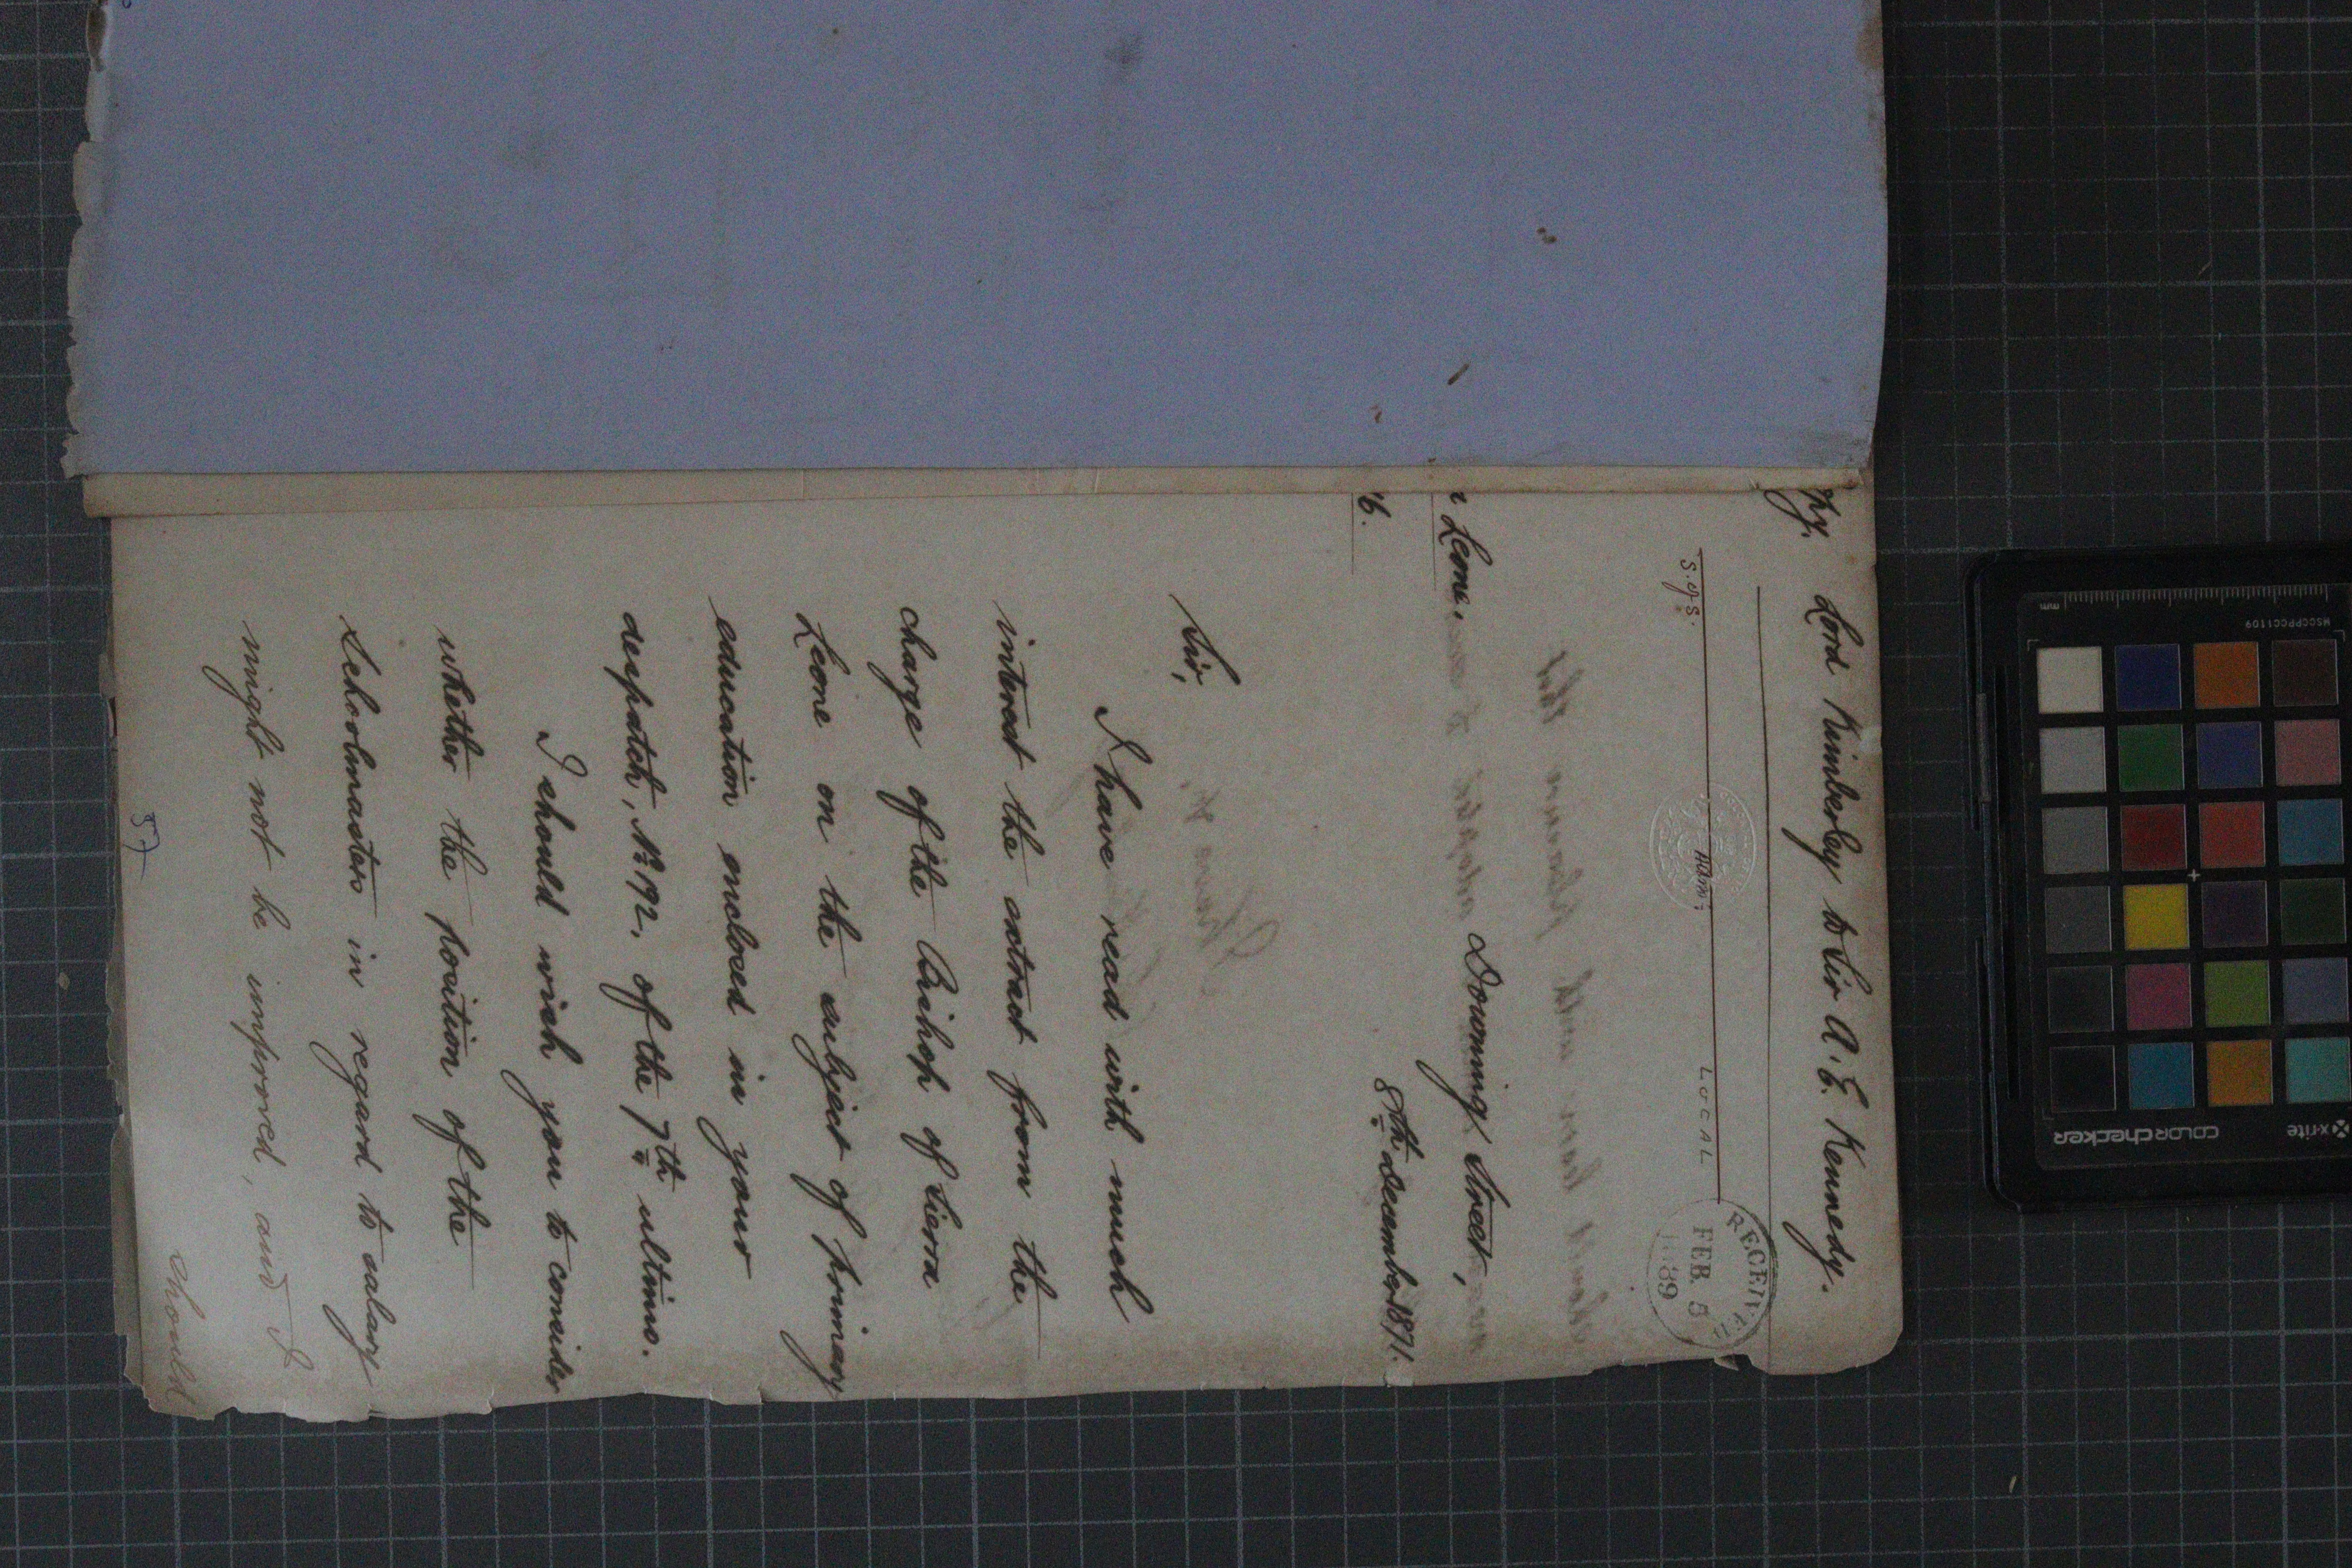 py. Lord Kimberley to Sir A. E. Kennedy.
RECEIVED
FEB 5
1889
S.G.S.
LOCAL
Leone.
Downing Street,
16.
8th December 1871.
Sir,
I have read with much
interest the extract from the
charge of the Bishop of Sierra
Leone on the subject of primary
education enclosed in your
despatch, No. 192. of the 7th ultimo.
I should wish you to consider
whether the position of the
Schoolmasters in regard to salary
might not be improved, and I
should
57
mm
MSCCPPCC1109
x-rite
colorchecker